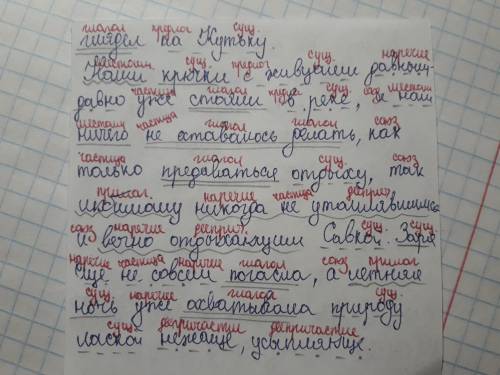 глагол предлог сущ.
глядел на Кутьку.
местоим сущ. предлог сущ. наречие
Наши крючки с живцами давным-
частица глагол предлог сущ. союз местоим
давно уже стояли в реке, и нам
местоим частица глагол глагол союз
ничего не оставалось делать, как
частица глагол сущ. союз
только предаваться отдыху, так
прилаг. наречие частица дееприч.
любимому никогда не утомлявшимся
союз наречие дееприч. сущ. сущ.
и вечно отдыхающим Савкой. Заря
наречие частица наречие глагол союз прилаг
еще не совсем погасла, а летняя
сущ. наречие глагол сущ.
ночь уже охватывала природу
сущ. деепричастие деепричастие
лаской нежаще, усыпляюще.